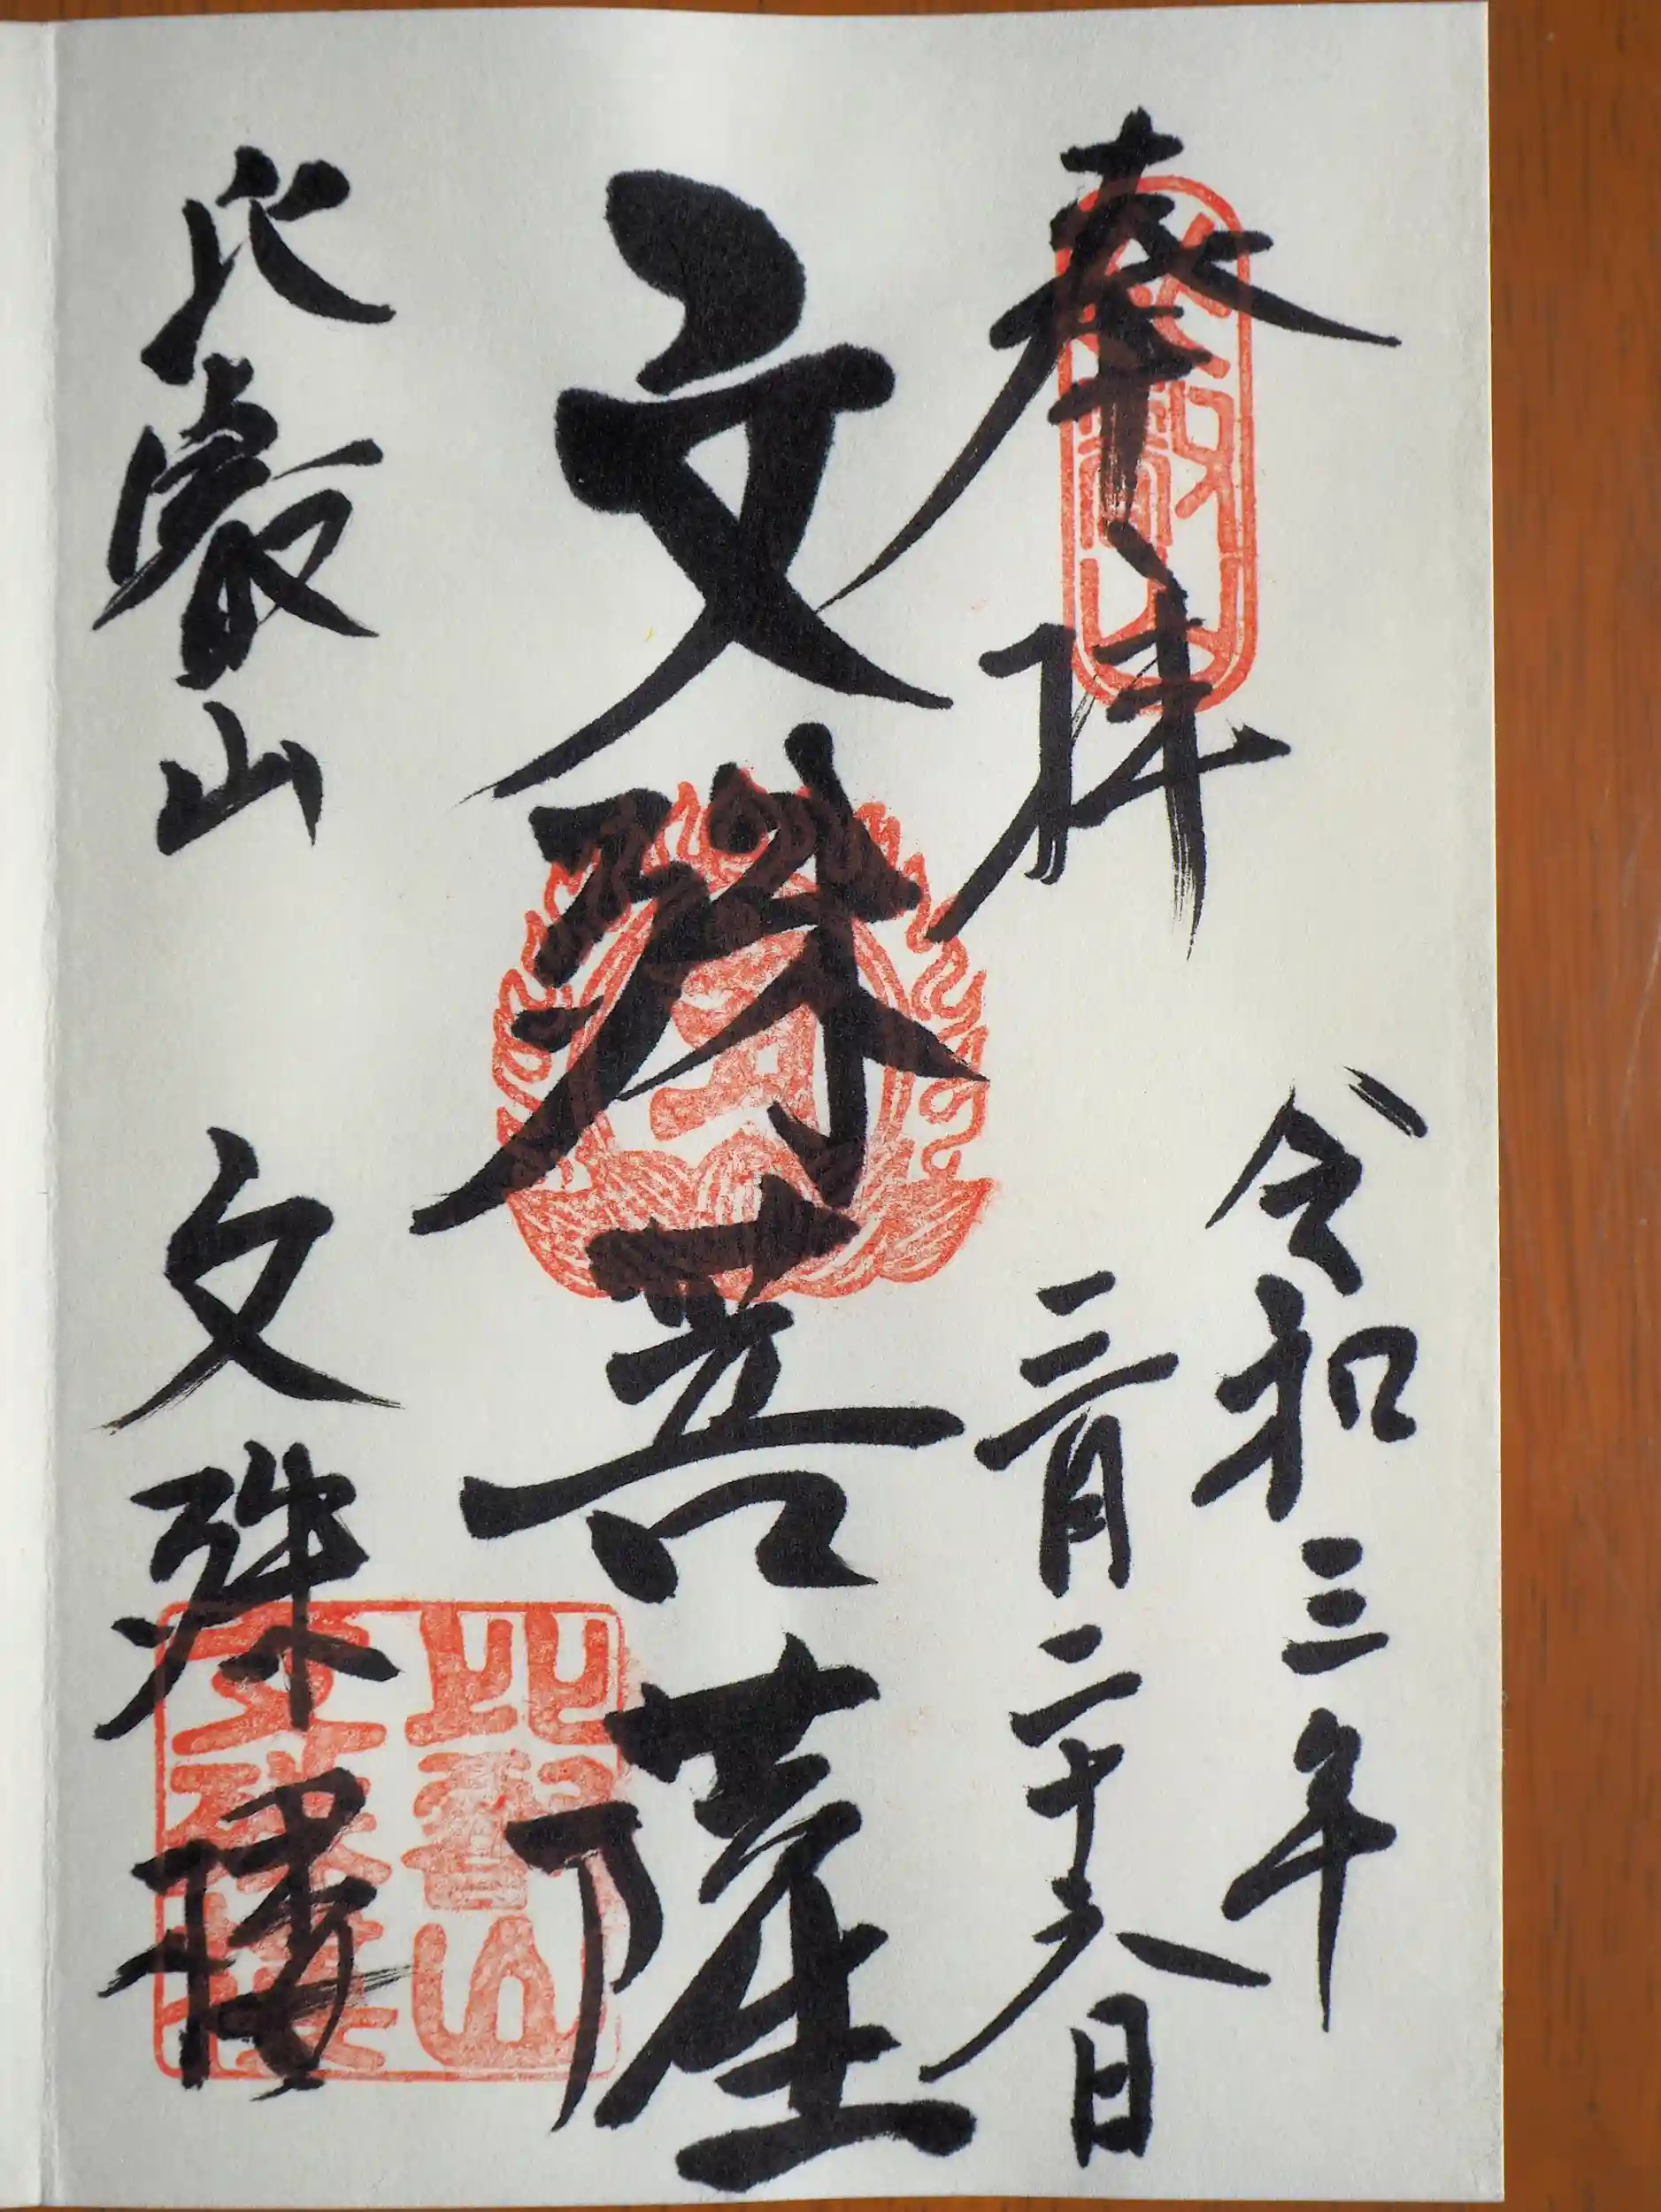 奉拝
令和三年
三月二十六日
文殊菩薩
比叡山 文殊楼
比叡山
文殊楼